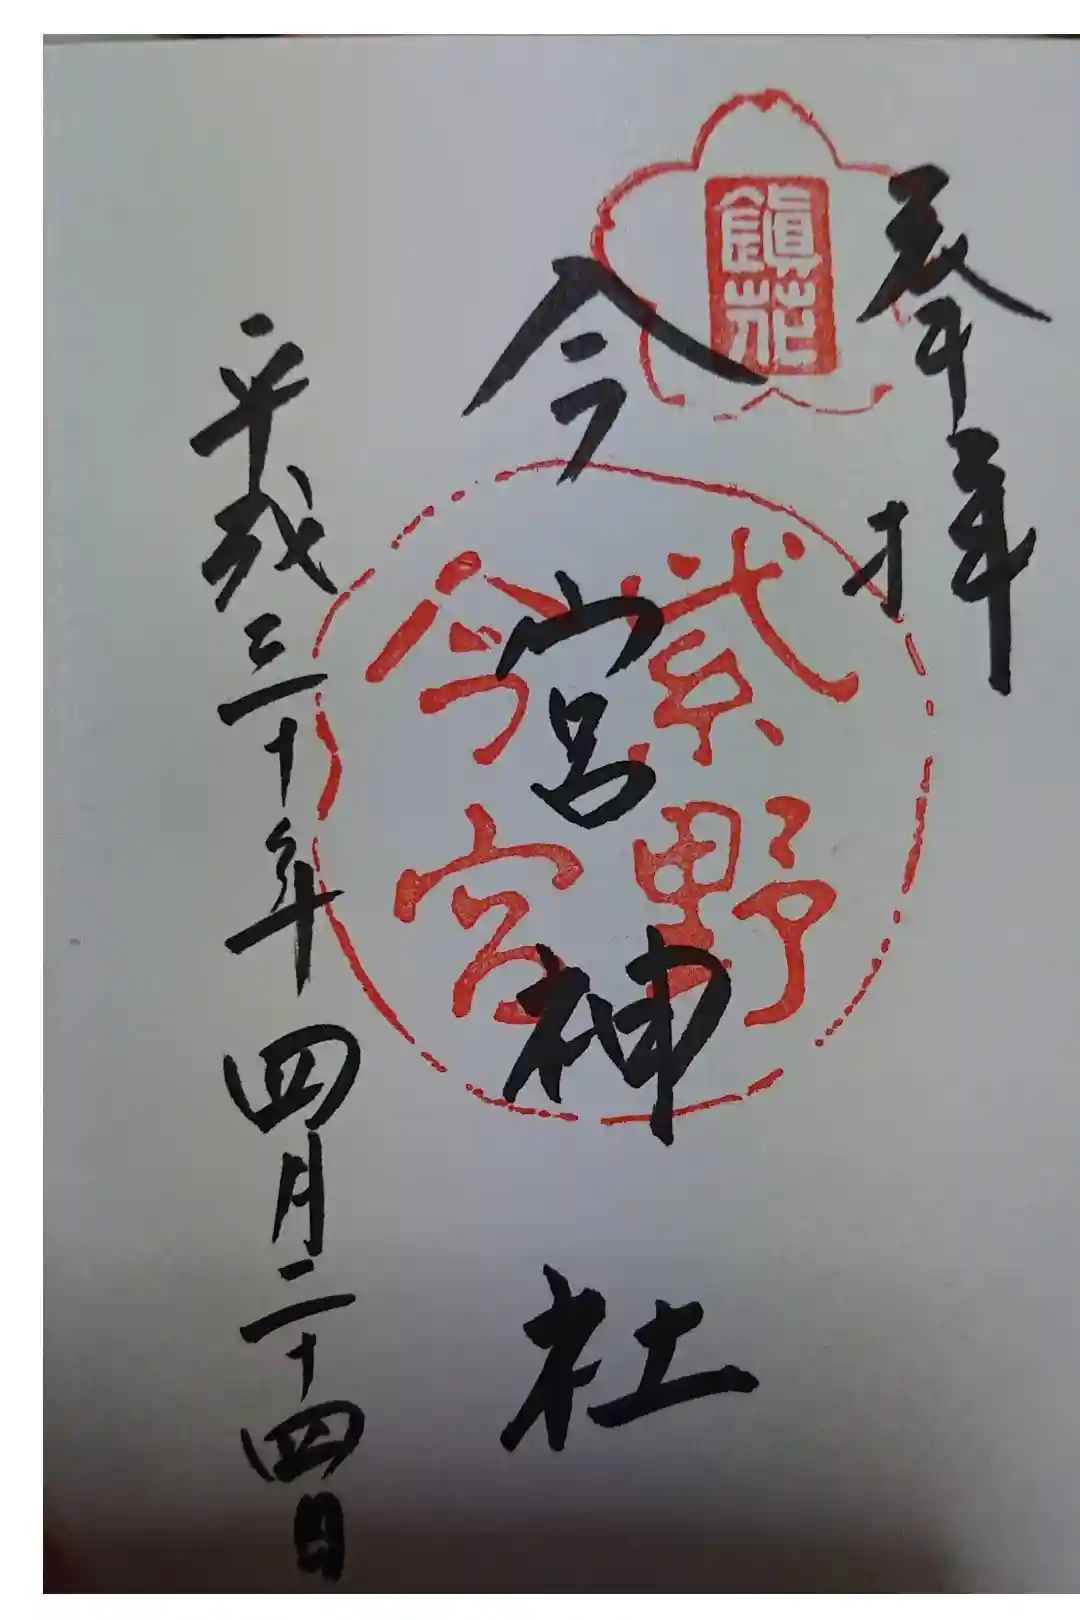 奉拝
鎮花
今宮神社
紫野
今宮
平成三十年四月二十四日